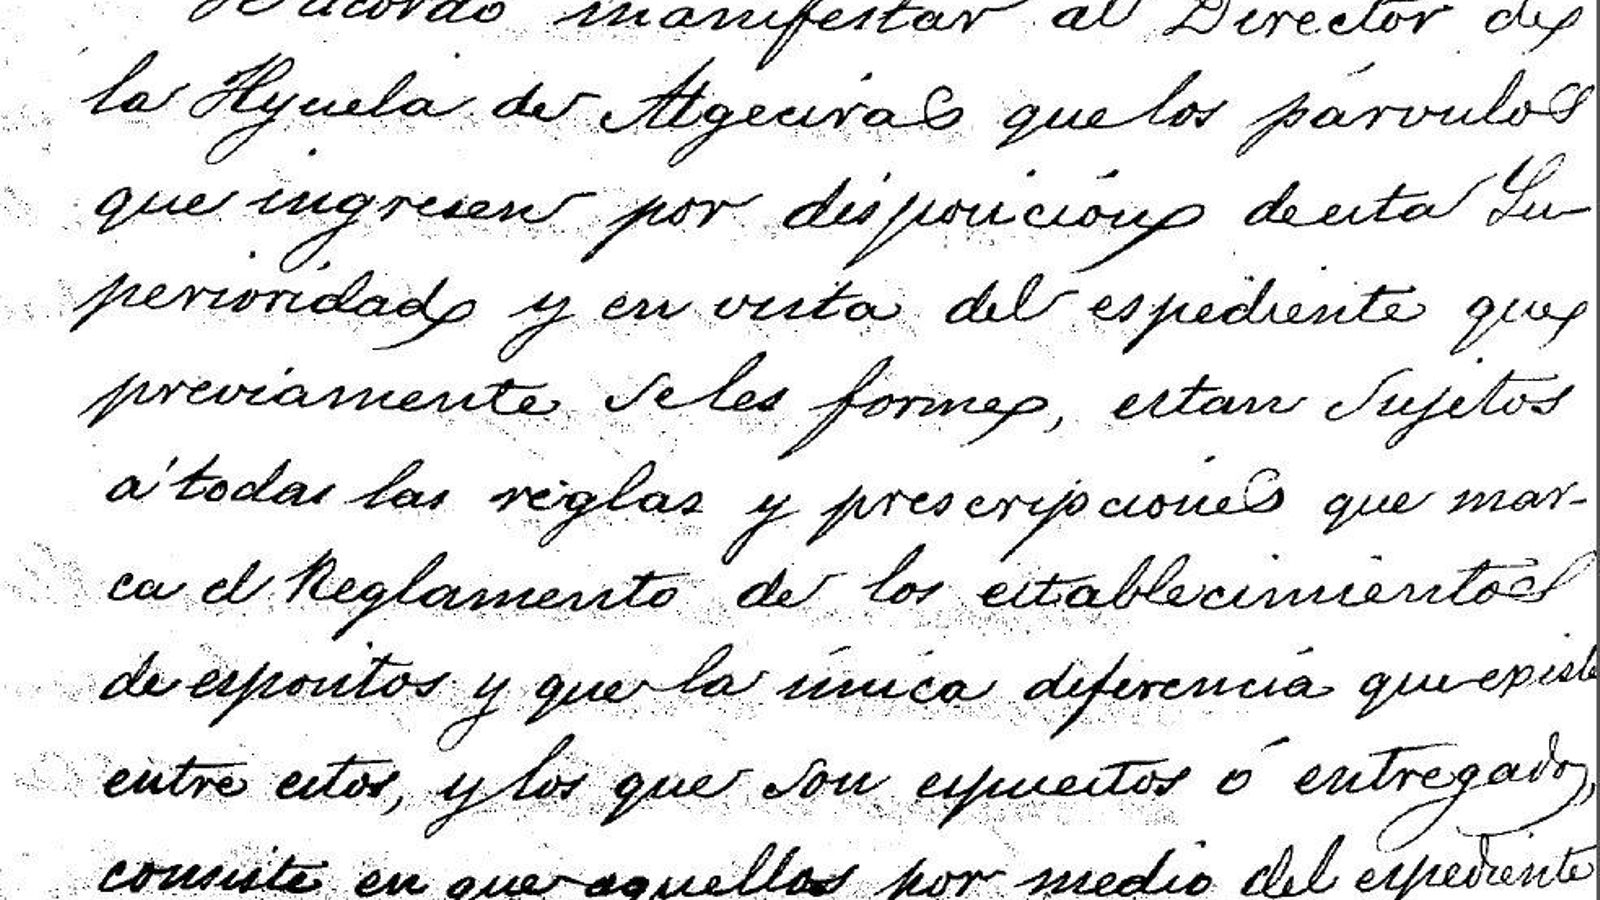 Se acordó manifestar al Director de
la Hijuela de Algeciras que los párvulos
que ingresen por disposición de esta Su-
perioridad y en vista del espediente que
previamente se les forme, estan sujetos
á todas las reglas y prescripciones que mar-
ca el Reglamento de los establecimientos
de espositos y que la única diferencia que existe
entre estos, y los que son espuestos ó entregados,
consiste en que aquellos por medio del espediente